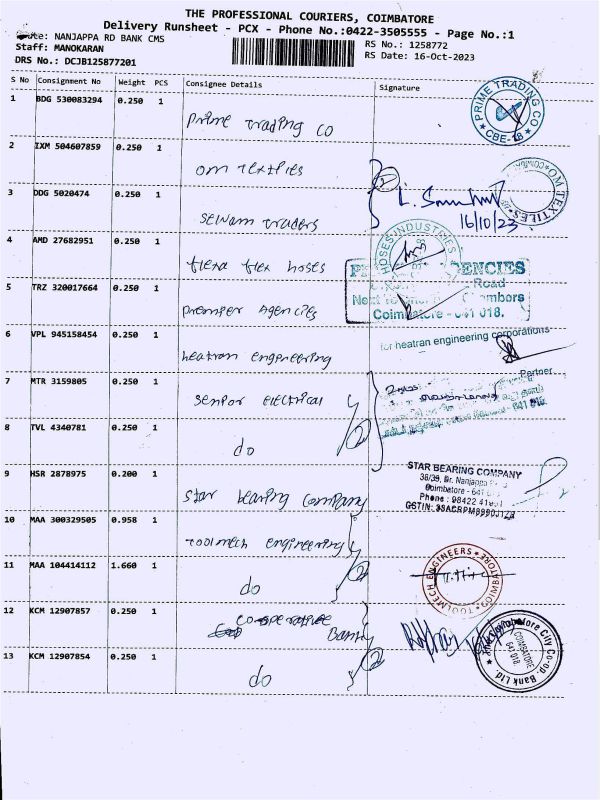 THE PROFESSIONAL COURIERS, COIMBATORE
Delivery Runsheet - PCX - Phone No.:0422-3505555 - Page No.:1
NANJAPPA RD BANK CMS
RS No.: 1258772
Staff: MANOKARAN
RS Date: 16-Oct-2023
DRS No.: DCJB125877201
S No Consignment No Weight PCS Consignee Details Signature
1 BDG 530083294 0.250 1
Prime Trading CO
PRIME TRADING CO
CBE-18
2 IXM 504607859 0.250 1
OM Textiles
OM TEXTILES
3 DDG 5020474 0.250 1
Selvam Traders
16/10/23
4 AMD 27682951 0.250 1
flexa flex hoses
HOSES INDUSTRIES
5 TRZ 320017664 0.250 1
Premier Agencies
ENCIES
Road
Coimbatore - 641 018.
6 VPL 945158454 0.250 1
heatran engineering
for heatran engineering corporations
Partner
7 MTR 3159805 0.250 1
Senior Electrical
8 TVL 4340781 0.250 1
do
9 HSR 2878975 0.200 1
Star bearing company
STAR BEARING COMPANY
Coimbatore - 641
Phone : 98422
10 MAA 300329505 0.958 1
Toolmech engineering
TOOLMECH ENGINEERS COIMBATORE
11 MAA 104414112 1.660 1
do
12 KCM 12907857 0.250 1
Co-operative
Bank
Coimbatore City Co-op. Bank Ltd.
COIMBATORE
641 018.
13 KCM 12907854 0.250 1
do